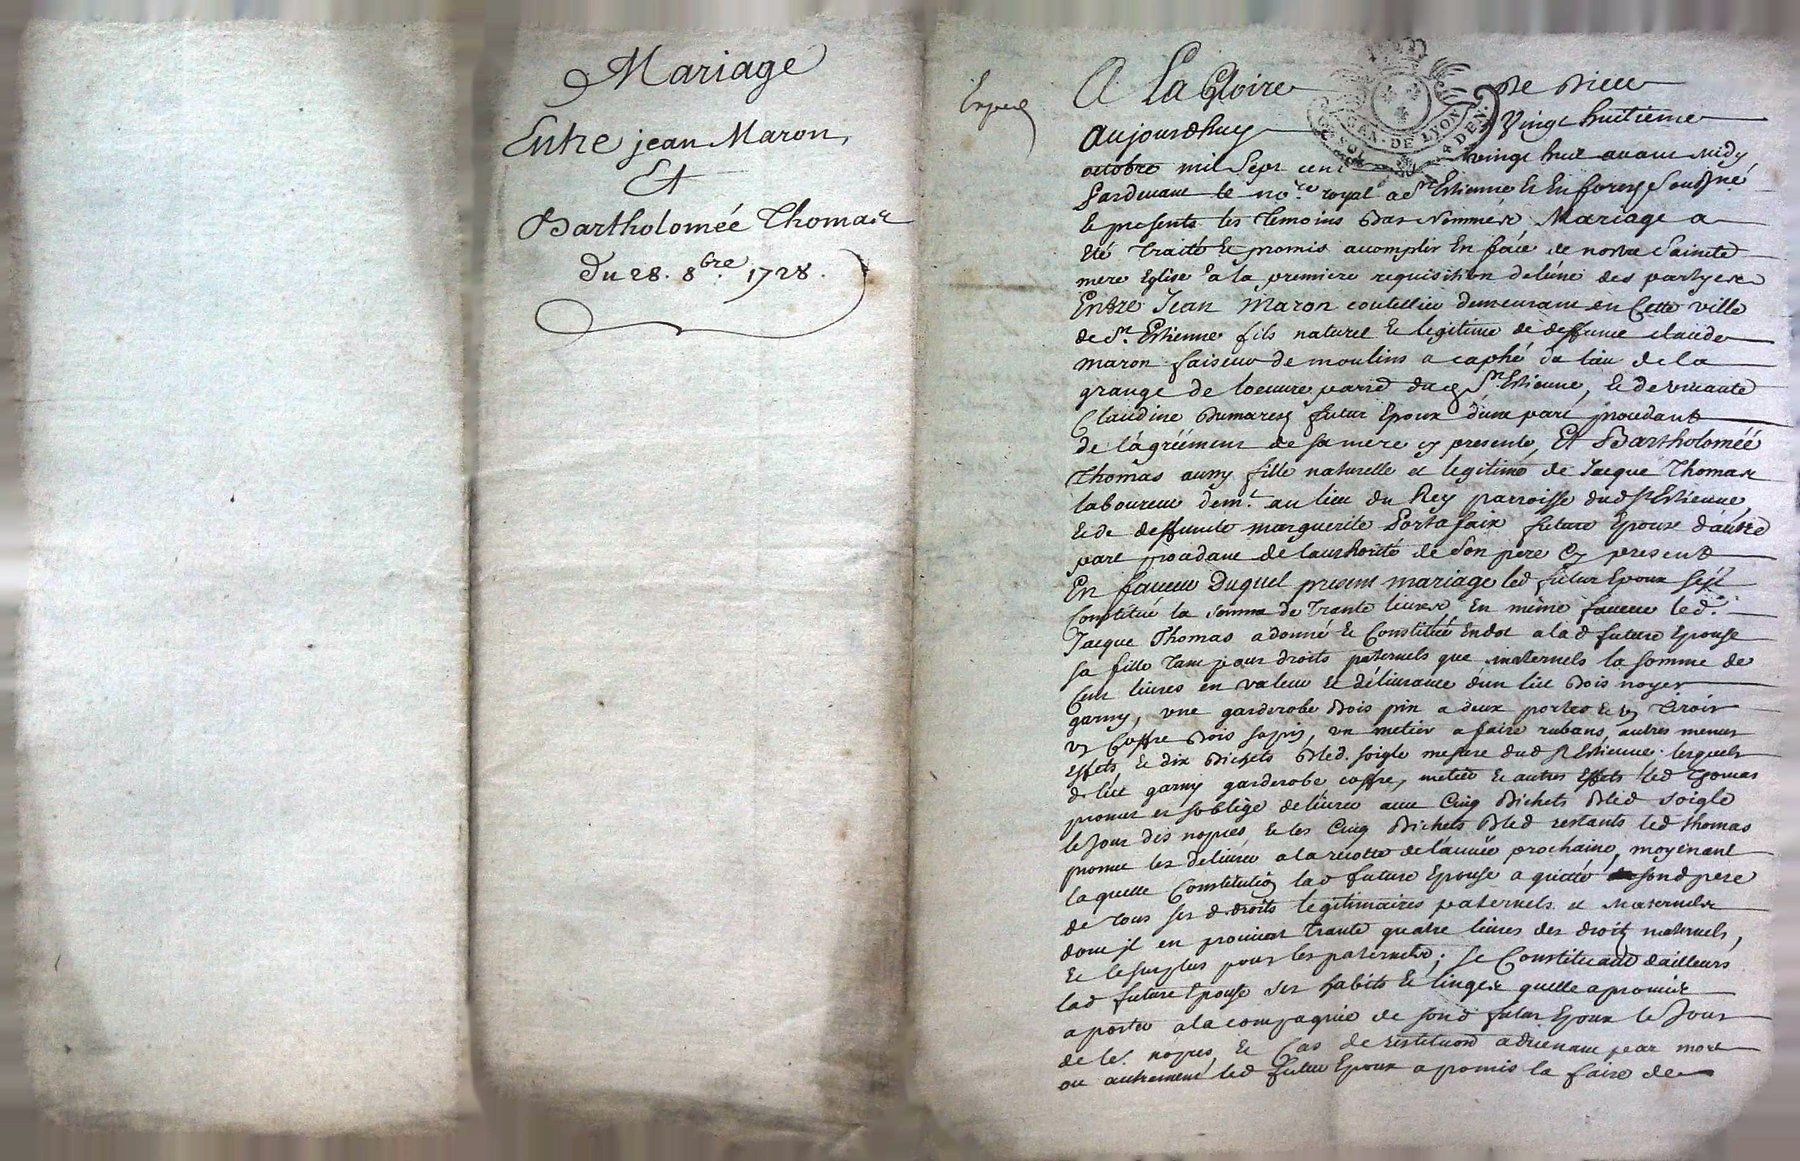 Mariage
Entre jean Maron,
Et
Bartholomée Thomas
du 28. 8bre. 1728.
Exped
A La Gloire De Dieu
GEN. DE LYON
Aujourdhuy Vingt huitieme
octobre mil Sept cent vingt huit avant Midy
Pardevant le nore. royal a St Estienne En forest Soussigné
le presents les temoins Bas Nommés Mariage a
été Traité et promis acomplir En face de nostre Sainte
mere Eglise a la premiere requisition de lune des partyes
Entre Jean Maron coutellier demeurant en Cette ville
de St. Estienne fils naturel et legitime de deffunt claude
maron faiseur de moulins a caphé du lieu de la
grange de loeuvre parrd dud St Estienne, et de vivante
Claudine Dumarest futur Epoux dune part procedant
de lagréement de sa mere cy presente, Et Bartholoméé
Thomas aussy fille naturelle et legitime de Jacque Thomas
laboureur demt. au lieu du Rey parroisse dud St Estienne
et de deffunte marguerite Portafaix future Epouse dautre
part procedant de lauthorité de Son pere Cy present
En faveur Duquel present mariage led futur Epoux sest
Constitué la somme de Trante livres En même faveur led.
Jacque Thomas a donné et Constitué En dot a lad future Epouse
sa fille tant pour droits paternels que maternels la somme de
Cent livres en valeur et délivrance dun lit Bois noyer
garny, une garderobe Bois pin a deux portes et un tiroir
un Coffre Bois sapin, un metier a faire rubans, autres menus
effets, et dix Bichets Bled soigle mesure dud St Estienne. lesquels
d. lit garny garderobe coffre, metier et autres Effets led Thomas
promet et soblige delivrer avec Cinq Bichets Bled soigle
le Jour des nopces et les Cinq Bichets Bled restants led Thomas
promet les delivrer a la recolte de lannée prochaine, moyenant
laquelle Constitution lad future Epouse a quitté sond pere
de tous ses d droits legitimaires paternels et Maternels
dont jl en provient trante quatre livres des droits maternels,
et le surplus pour les paternels; se Constituant dailleurs
lad future Epouse ses habits et linges quelle a promis
aporter a la compagnie de sond futur Epoux le Jour
de les. nopces, et Cas de restitution advenant par mort
ou autrement led futur Epoux a promis la faire de